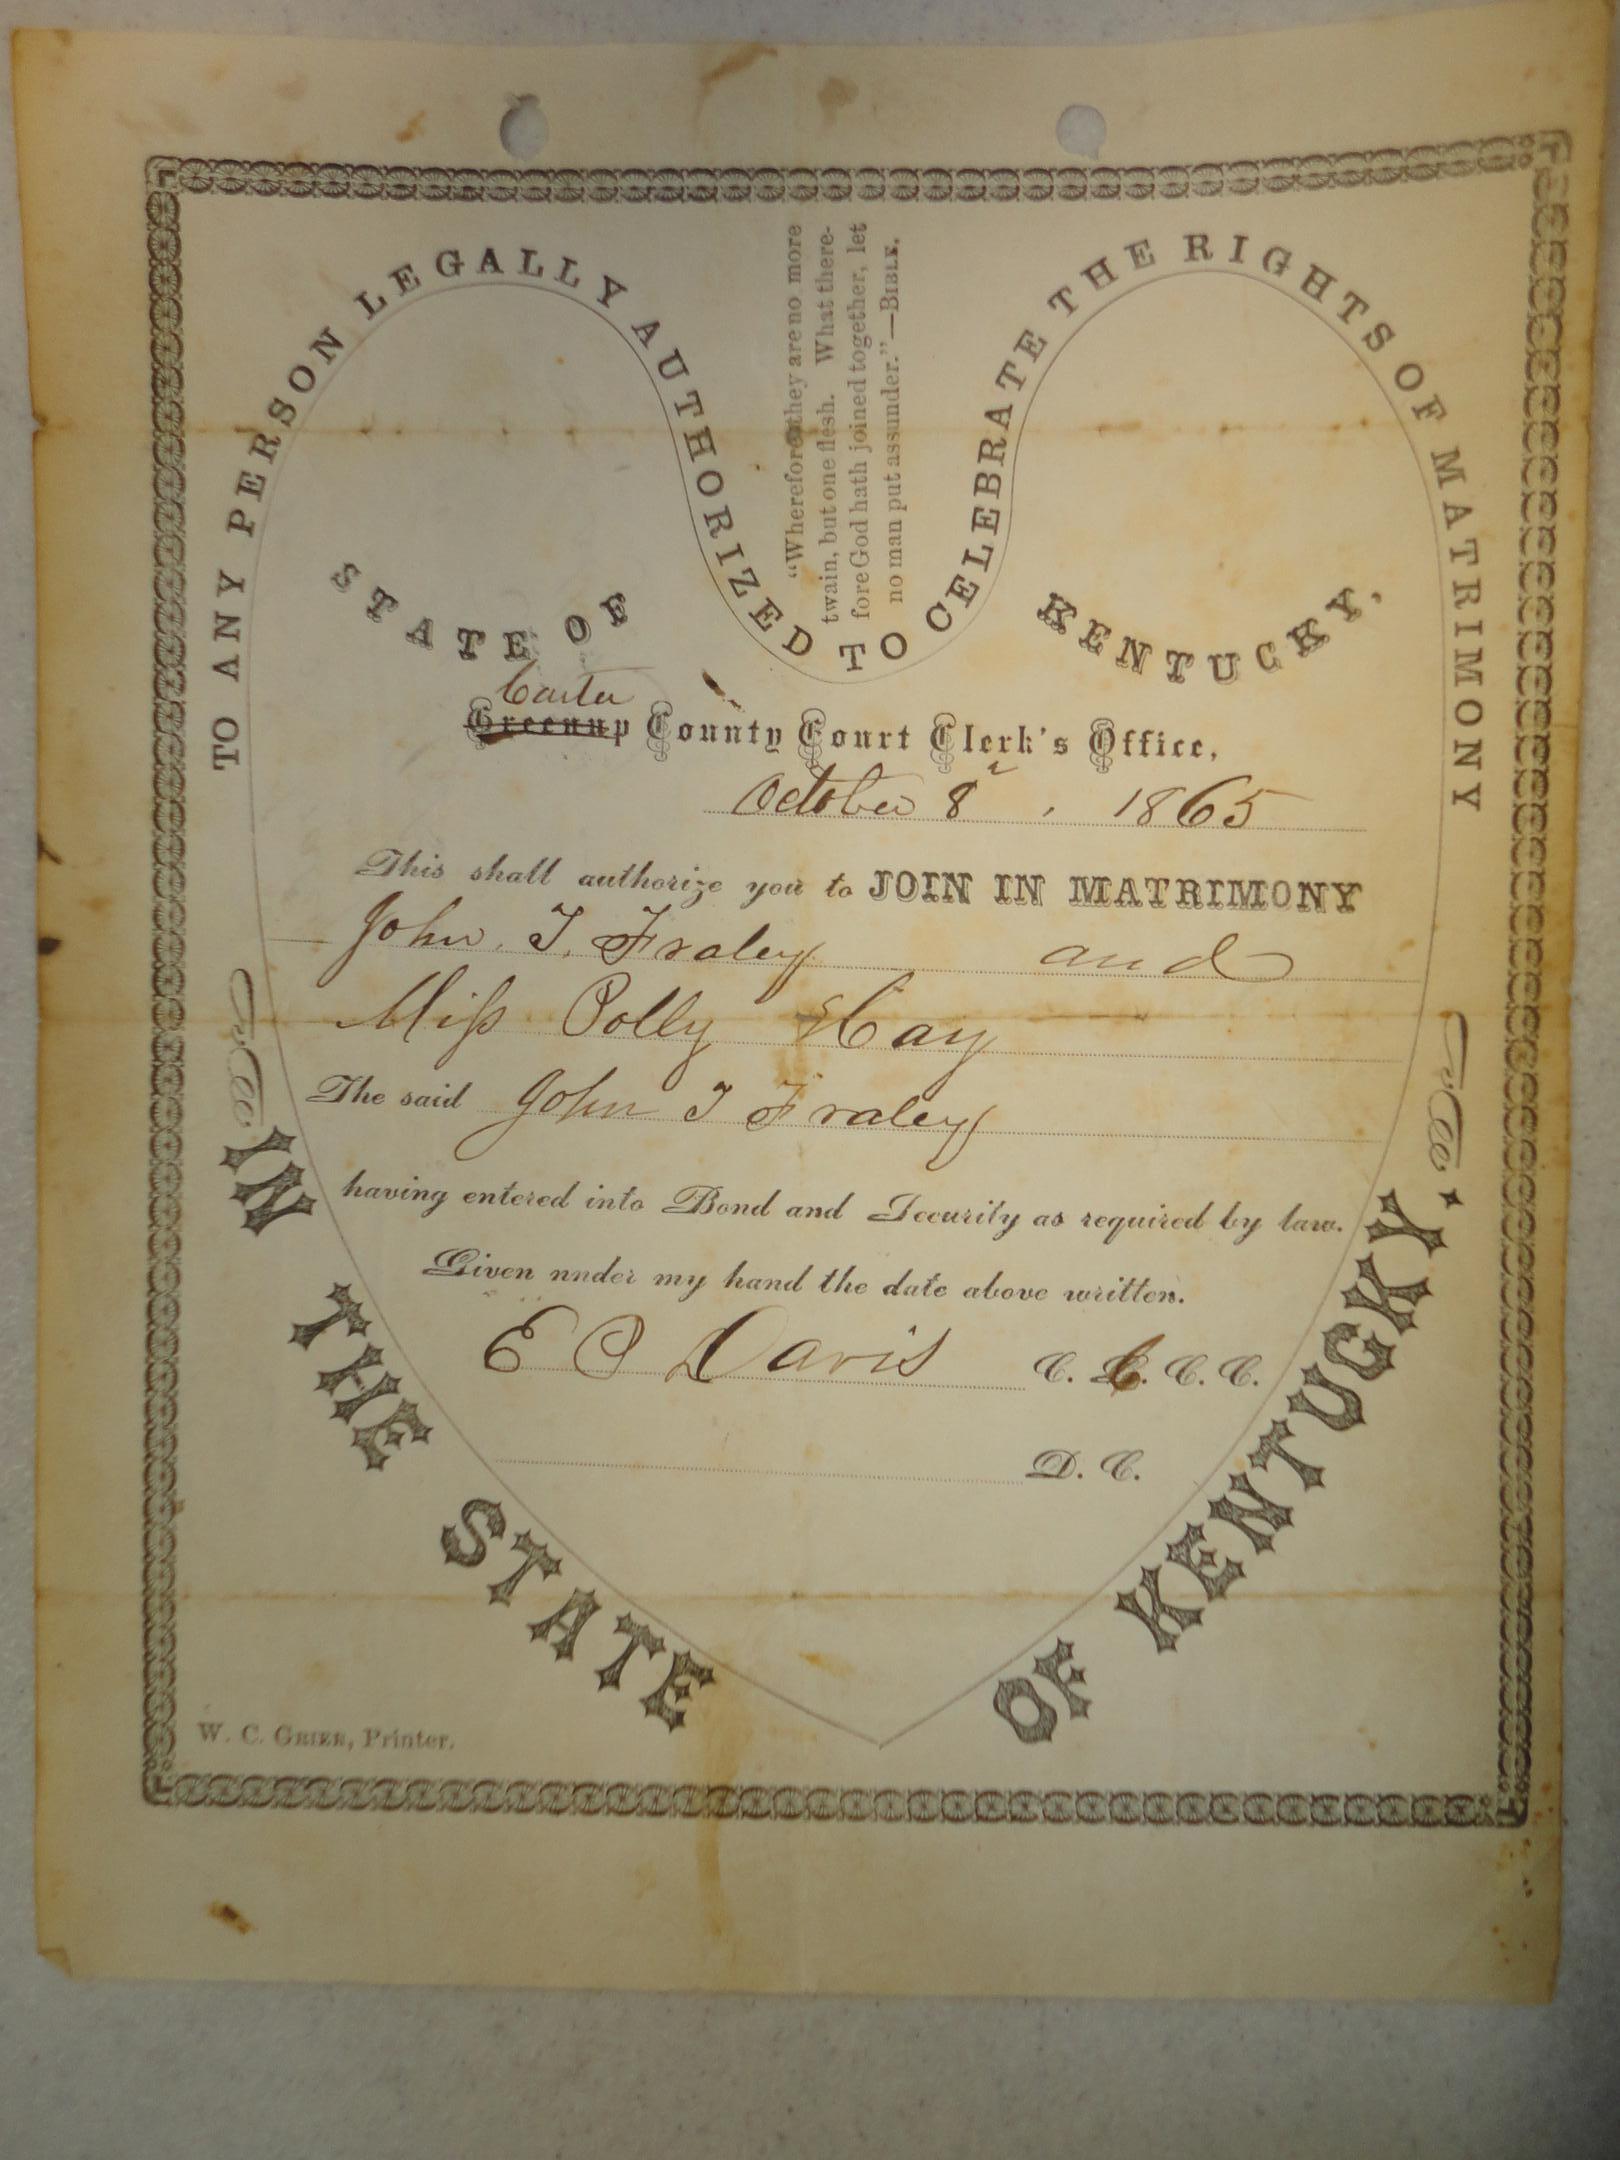 TO ANY PERSON LEGALLY AUTHORIZED TO CELEBRATE THE RIGHTS OF MATRIMONY
IN THE STATE OF KENTUCKY.
"Wherefore they are no more
twain, but one flesh. What there-
fore God hath joined together, let
no man put assunder."—BIBLE.
STATE OF KENTUCKY,
Carter
Greenup County Court Clerk's Office,
October 8, 1865
This shall authorize you to JOIN IN MATRIMONY
John. T. Fraley and
Miss Polly Hay
The said John T Fraley
having entered into Bond and Security as required by law.
Given nnder my hand the date above written.
E P Davis C. C. C. C.
D. C.
W. C. GRIER, Printer.